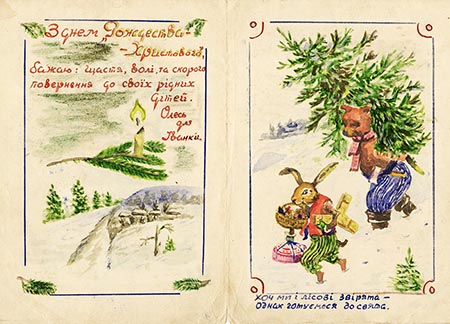 З днем „Рождества-
-Христового",
бажаю: щастя, волі, та скорого
повернення до своїх рідних
дітей.
Олесь
для
Іванки.
Хоч ми і лісові звірята –
Однак готуємося до свята.